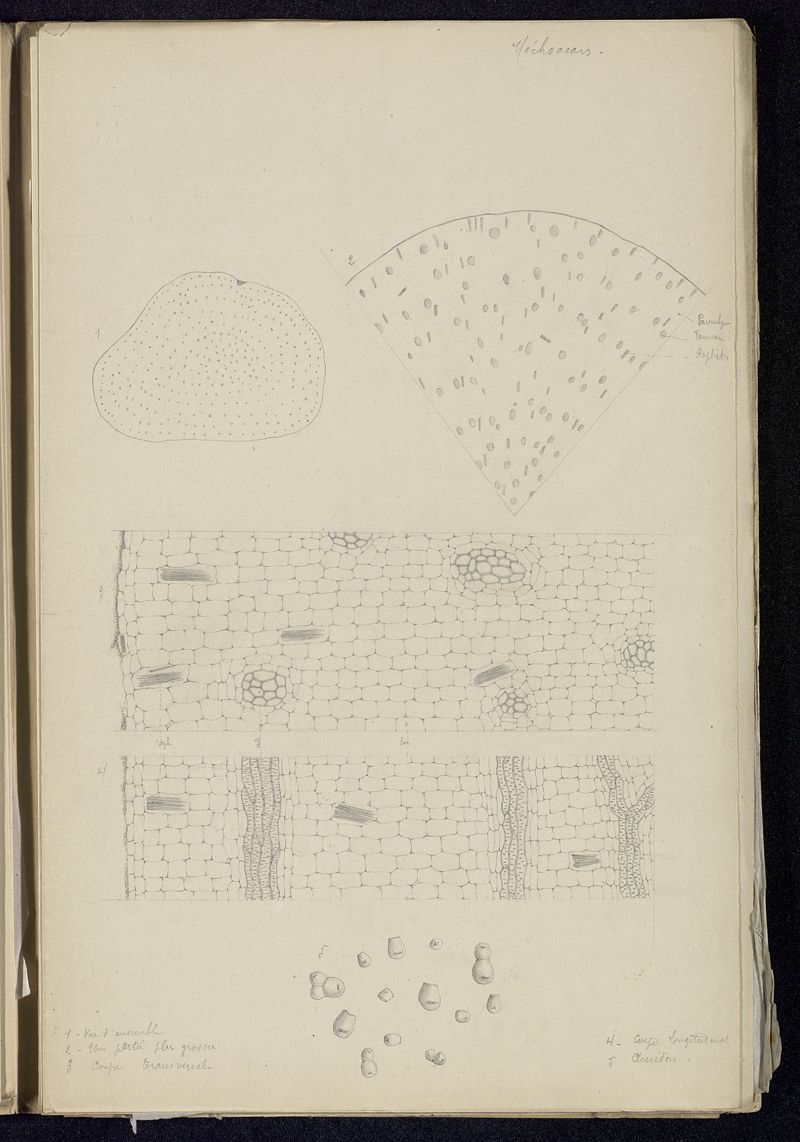 Méchoacan -
1
2
Faisceau
Raphides
3
Raph
4
5
1 - Vue d'ensemble
2 - Une partie plus grossie
3 Coupe transversale
4 - Coupe longitudinal
5 Amidon.